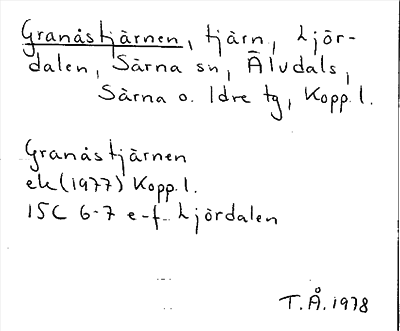 Granåstjärnen, tjärn, Ljör-
dalen, Särna sn, Älvdals,
Särna o. Idre tg, Kopp.l.
Granåstjärnen
ek (1977) Kopp.l.
15C 6-7 e-f Ljördalen
T.Å. 1978